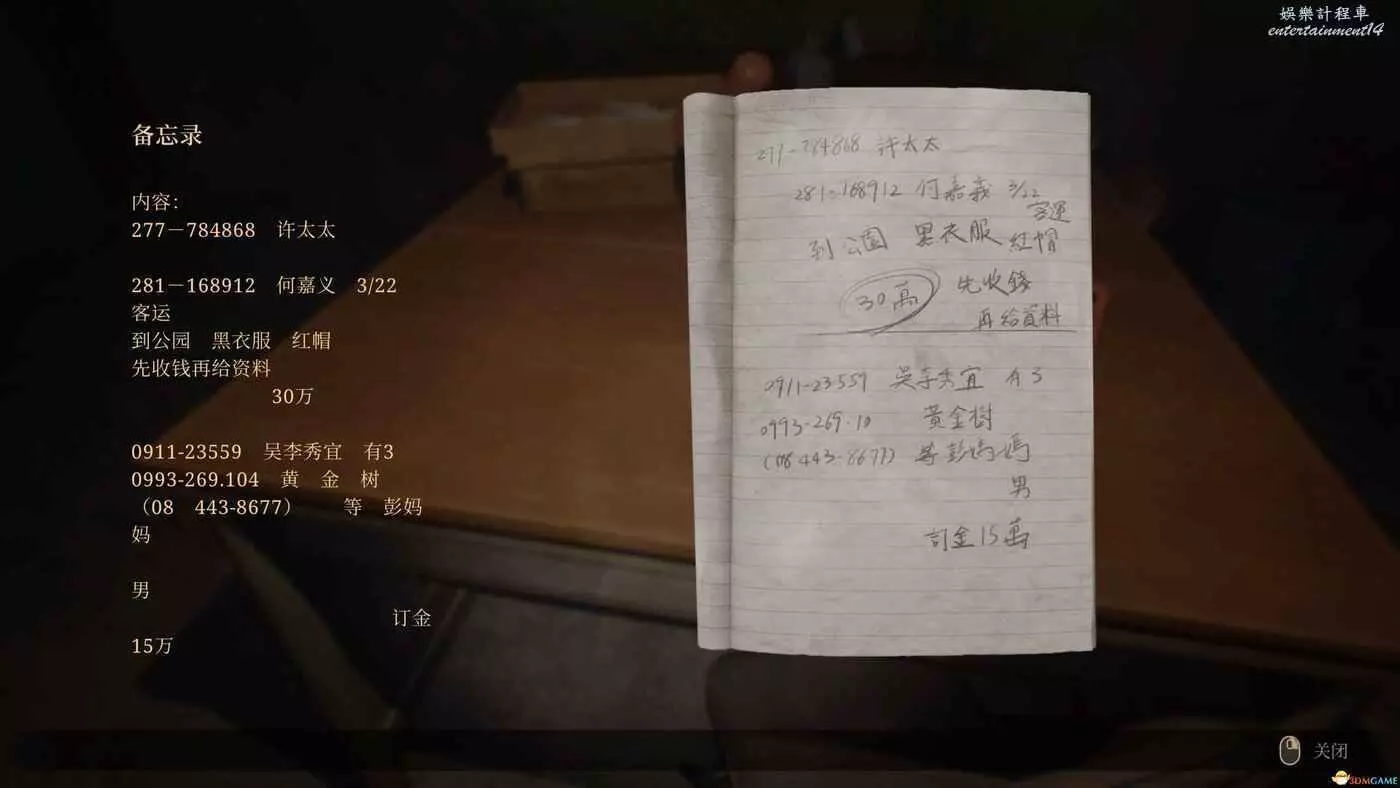 娛樂計程車
entertainment14
备忘录
内容：
277－784868　许太太
281－168912　何嘉义　3/22
客运
到公园　黑衣服　红帽
先收钱再给资料
30万
0911-23559　吴李秀宜　有3
0993-269.104　黄　金　树
（08　443-8677）　　等　彭妈
妈
男
订金
15万
277-784868 许太太
281-168912 何嘉義 3/22
客運
到公園 黑衣服 紅帽
30萬 先收錢
再给資料
0911-23559 吳李秀宜 有3
0993-269.10 黃金樹
(08 443-8677) 等彭媽媽
男
訂金15萬
关闭
3DMGAME